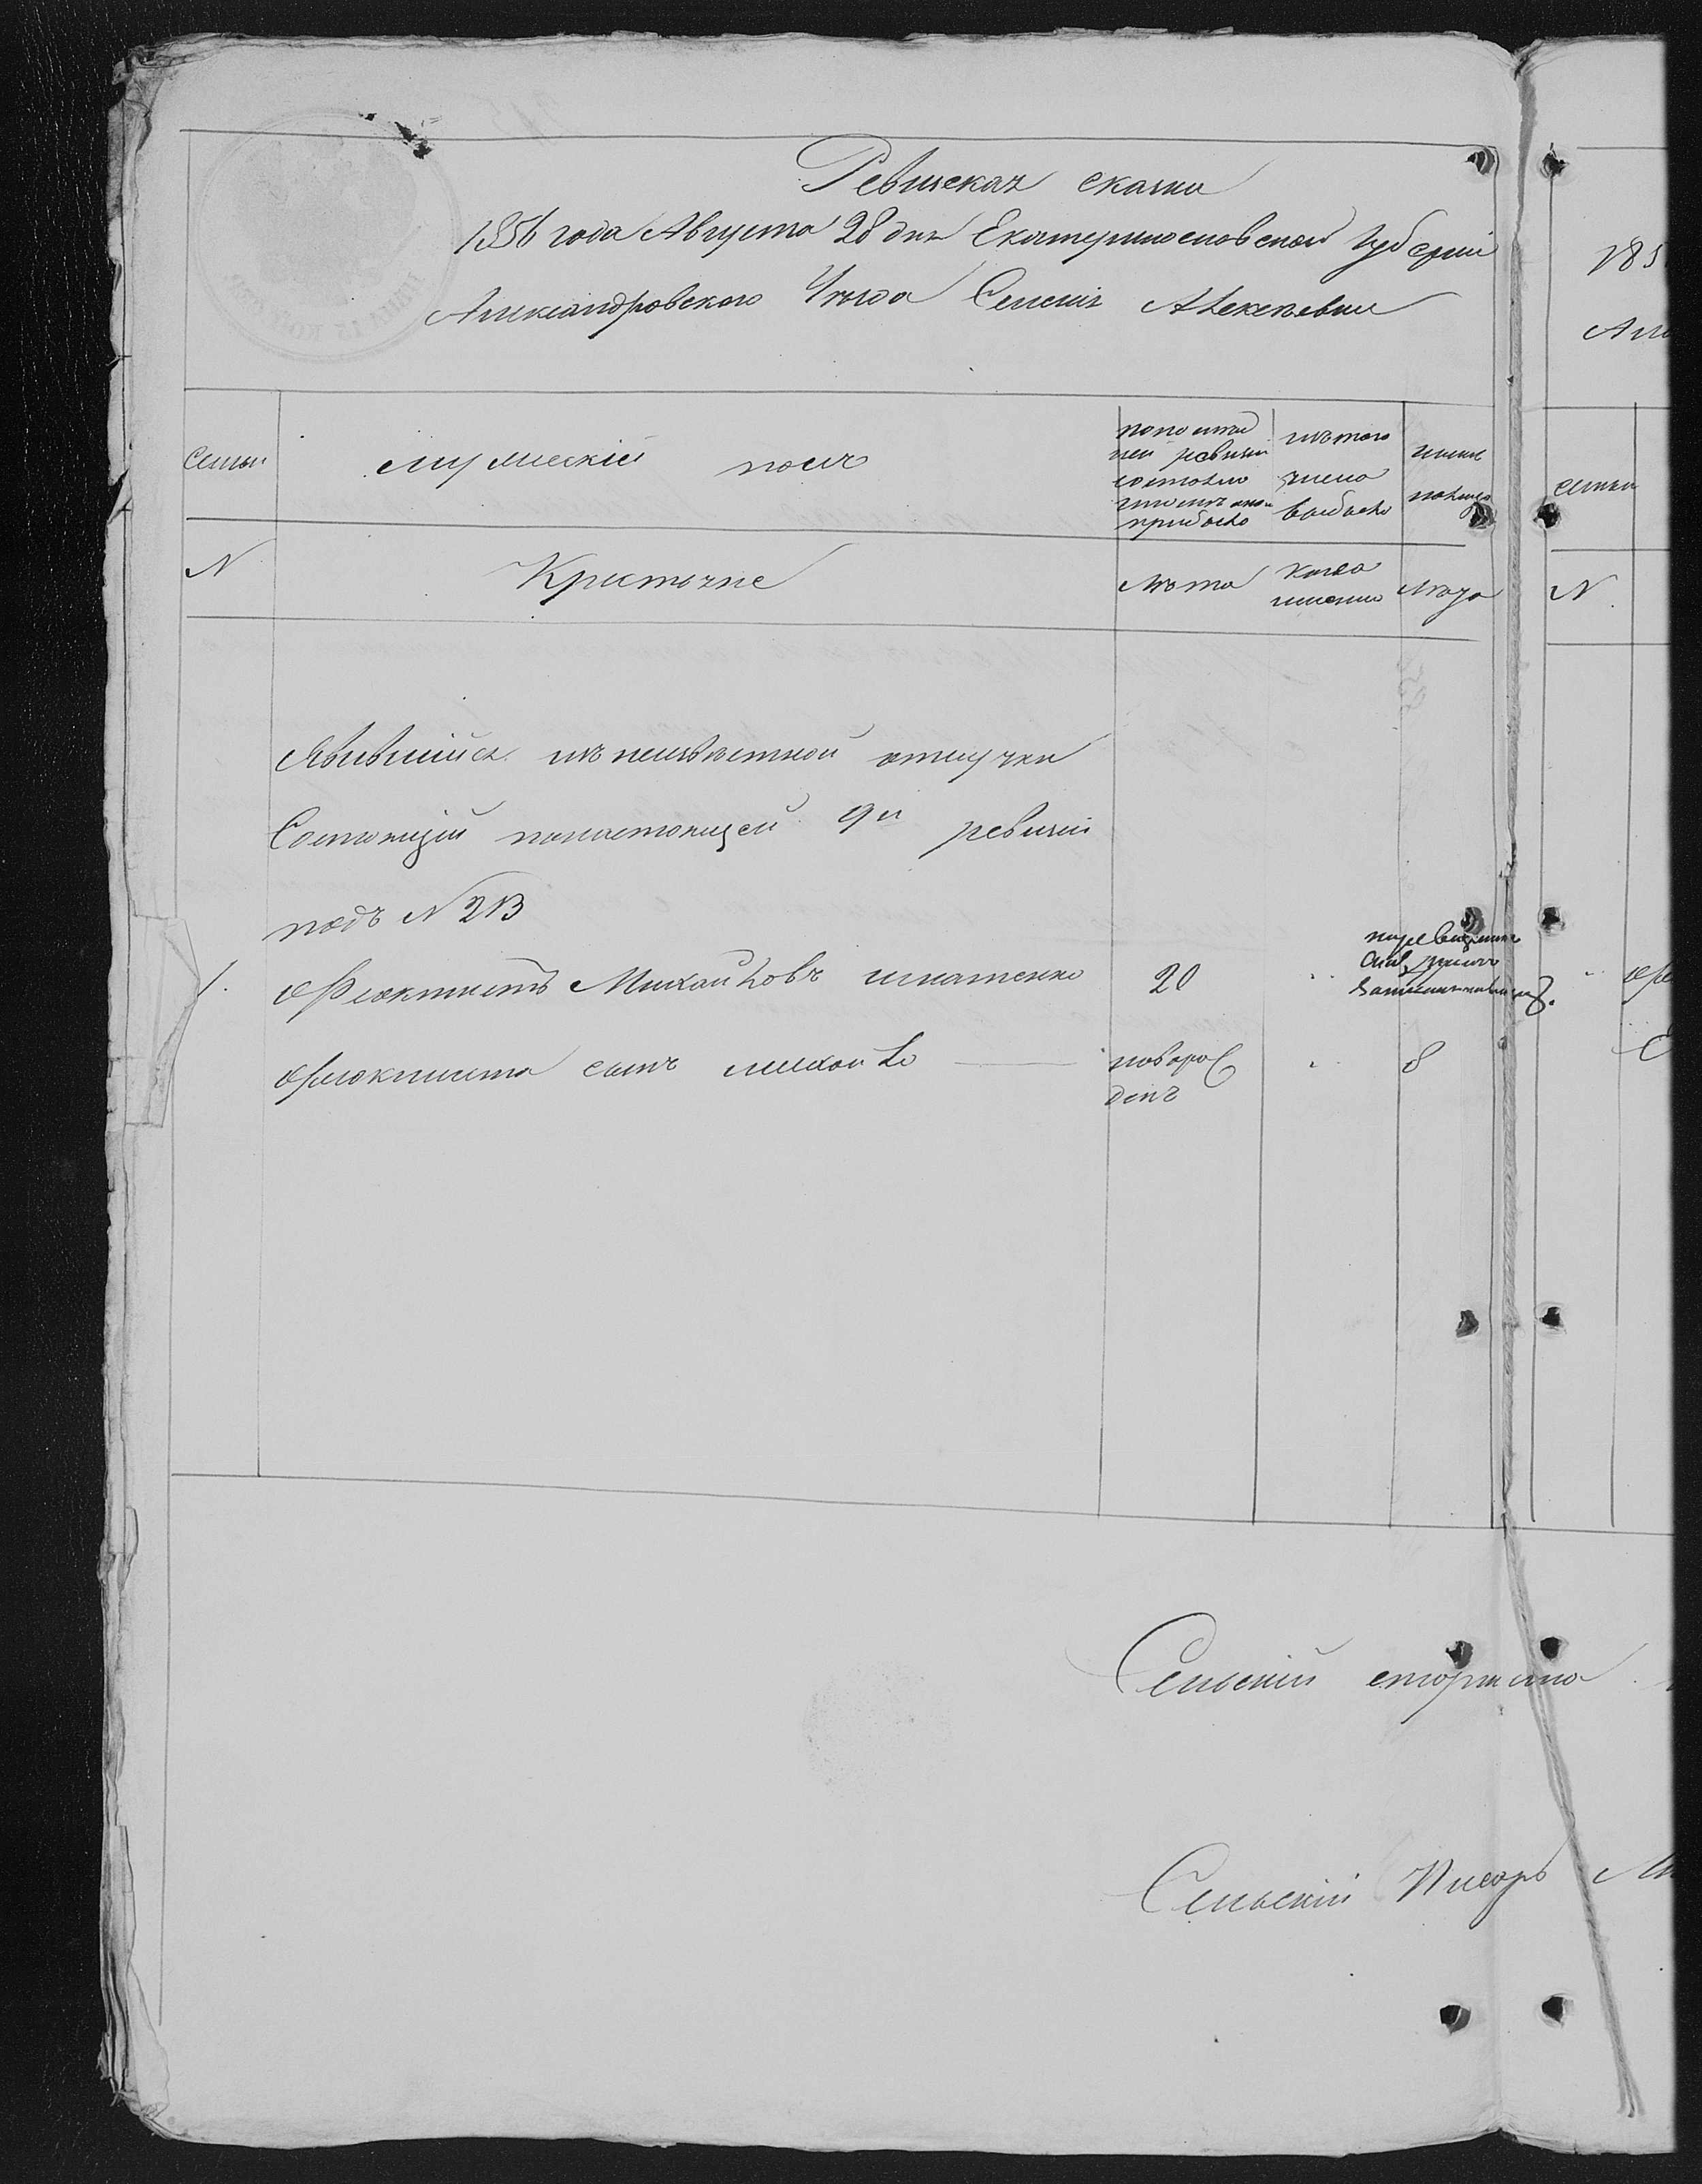 Ревизская сказка
1856 года Августа 28 дня Екатеринославской губерни
Александровского Уезда Селенiя Алексевки
Семьи
мужескiй полъ
попослед
ней ревизiи
состояло
прибыло
изъ того
числа
выбыло
ныне
налицо
семьи
N
Крестьяне
лета
когда
именно
лета
N
Явившiйся изъ неизвестной отлучки
Состоящiй понастоящей 9й ревизiи
подъ N 213
1. Феоктистъ Михайловъ игнатенко 20
Феоктиста сынъ михайло новорож 8
денъ
Сельскiй старшина
Сельскiй Писарь
185